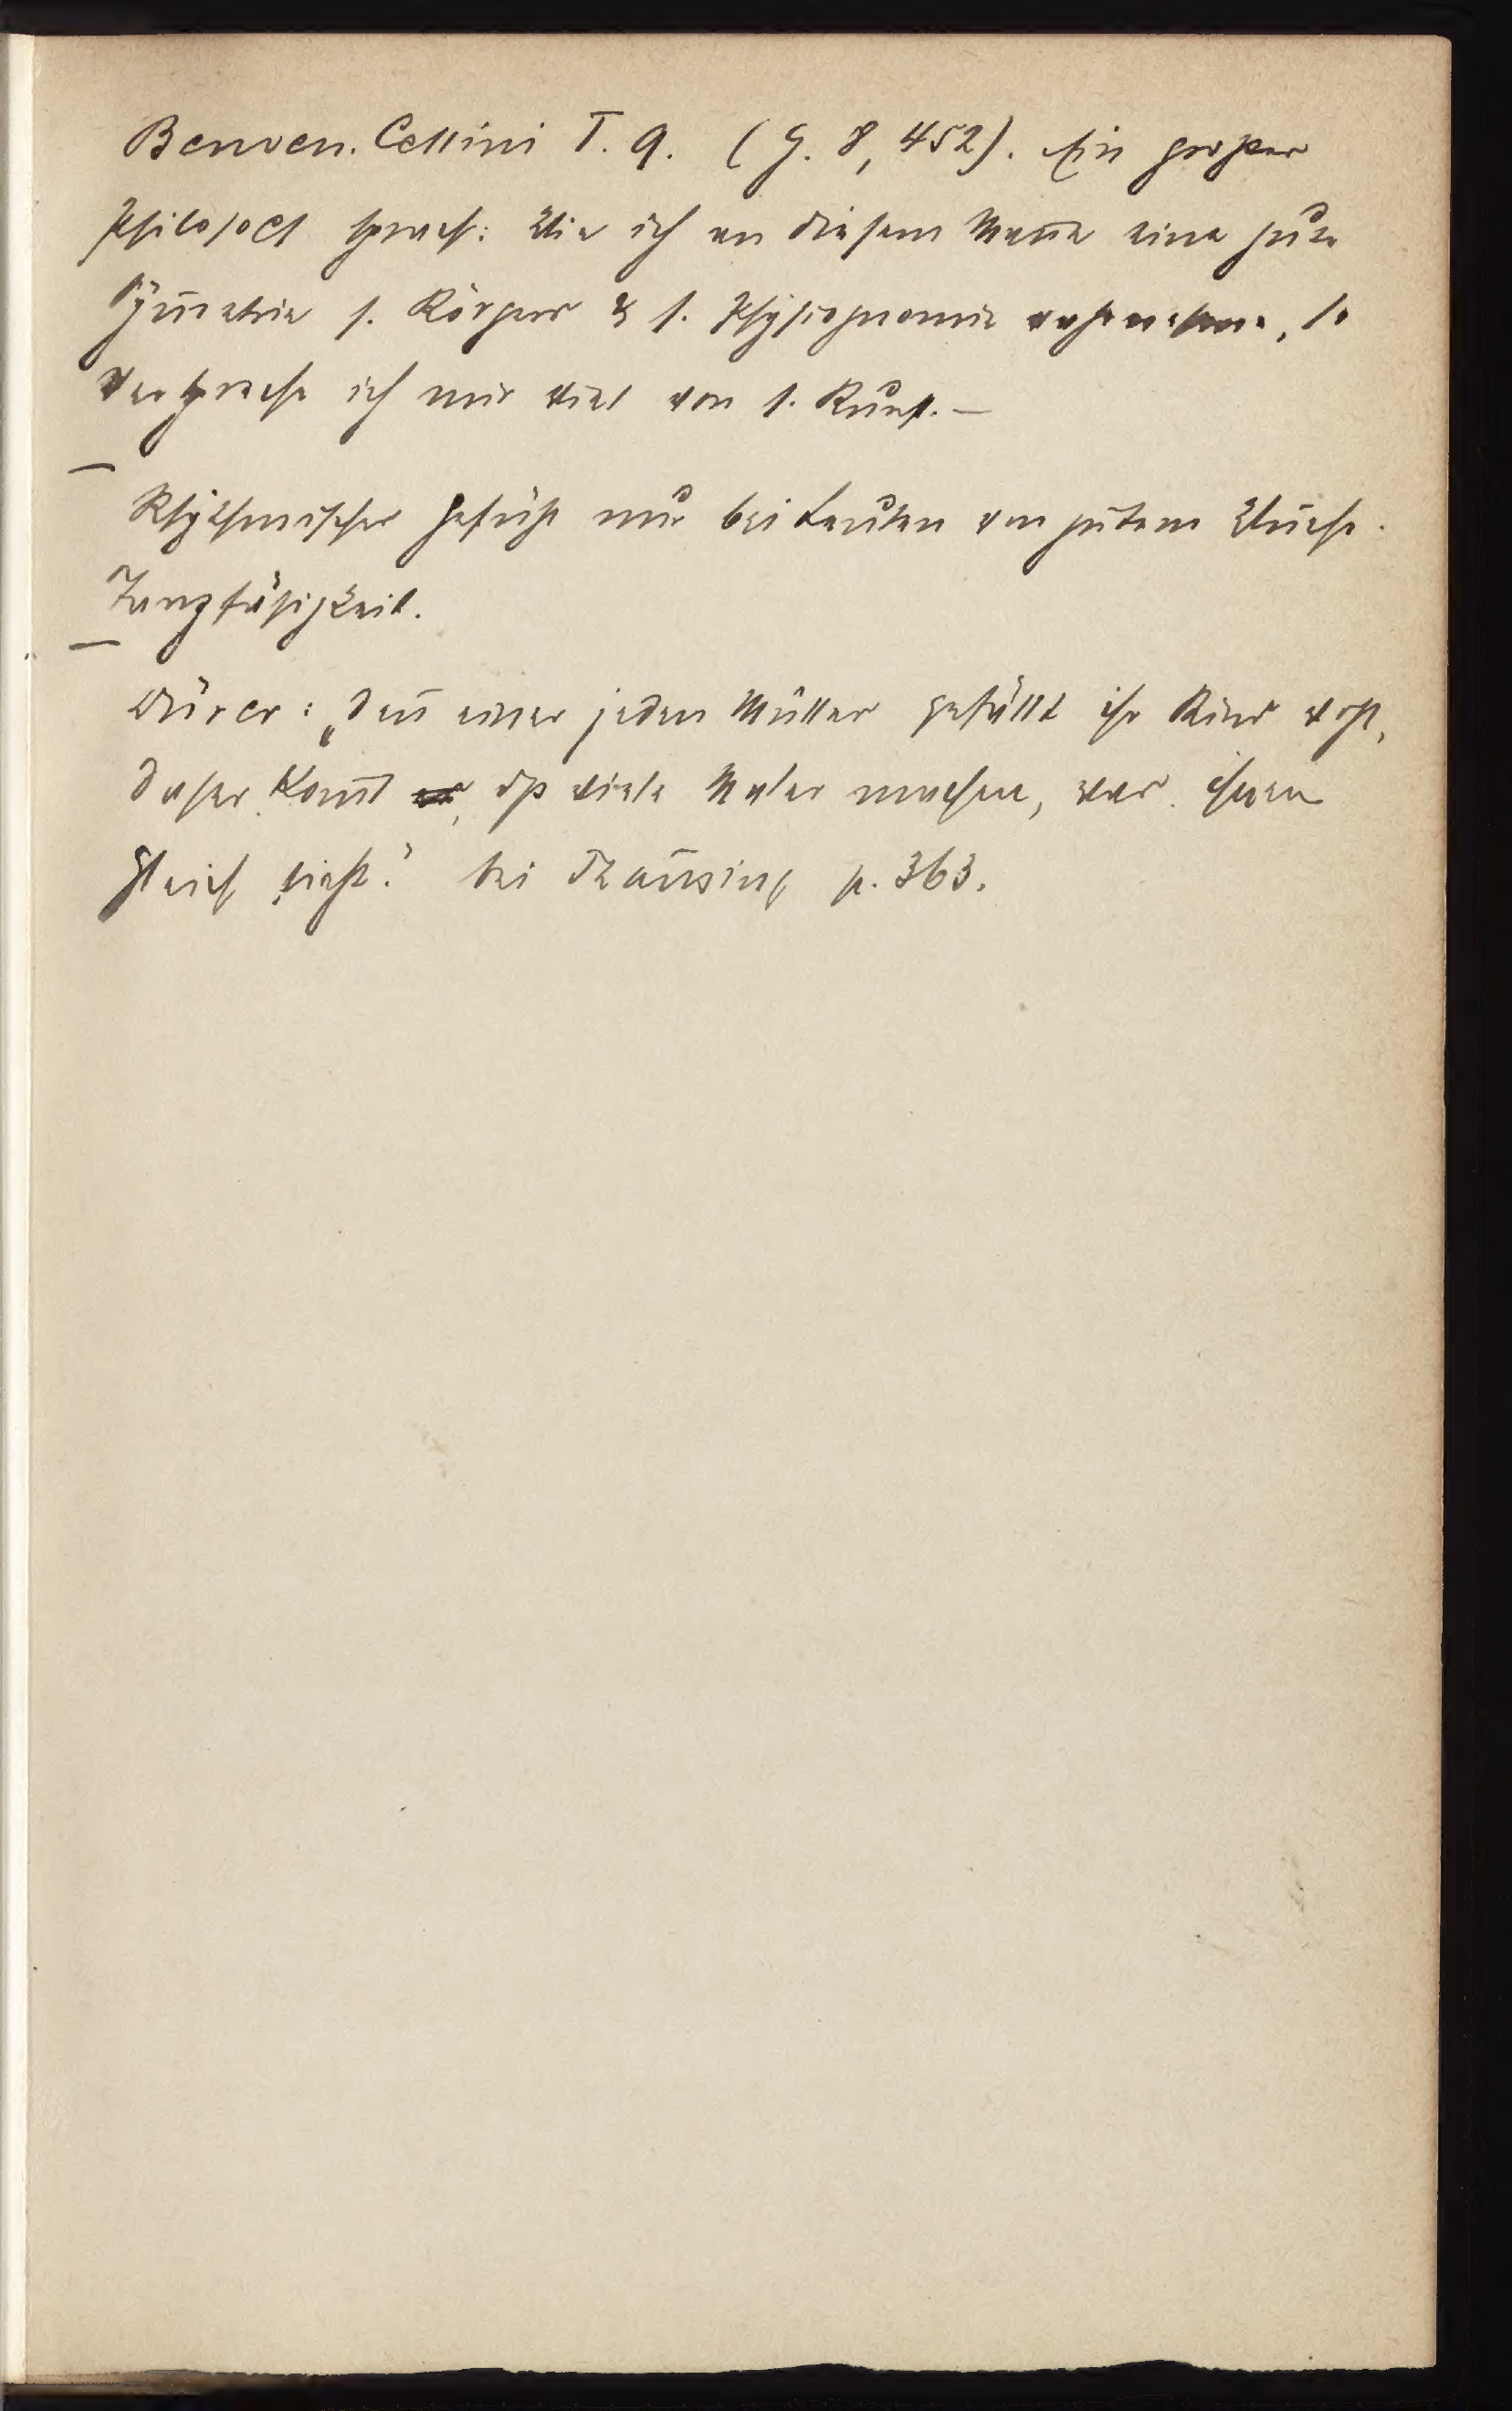 Benven. Cellini T. 9. (G. 8, 452). Ein großer
Philosoph sprach: Wie ich an diesem Mañe eine gute
Sym̃etrie s. Körpers & s. Physiognomie wahrnehme, so
verspreche ich mir viel von s. Kunst. —
Rhythmisches Gefühl nur bei Leuten von gutem Wuchse.
Tanzfähigkeit.
Dürer: „deñ einer jeden Mutter gefällt ihr Kind wohl,
daher kom̃t, dß viele Maler machen, was ihnen
gleich sieht." bei Thausing p. 363.